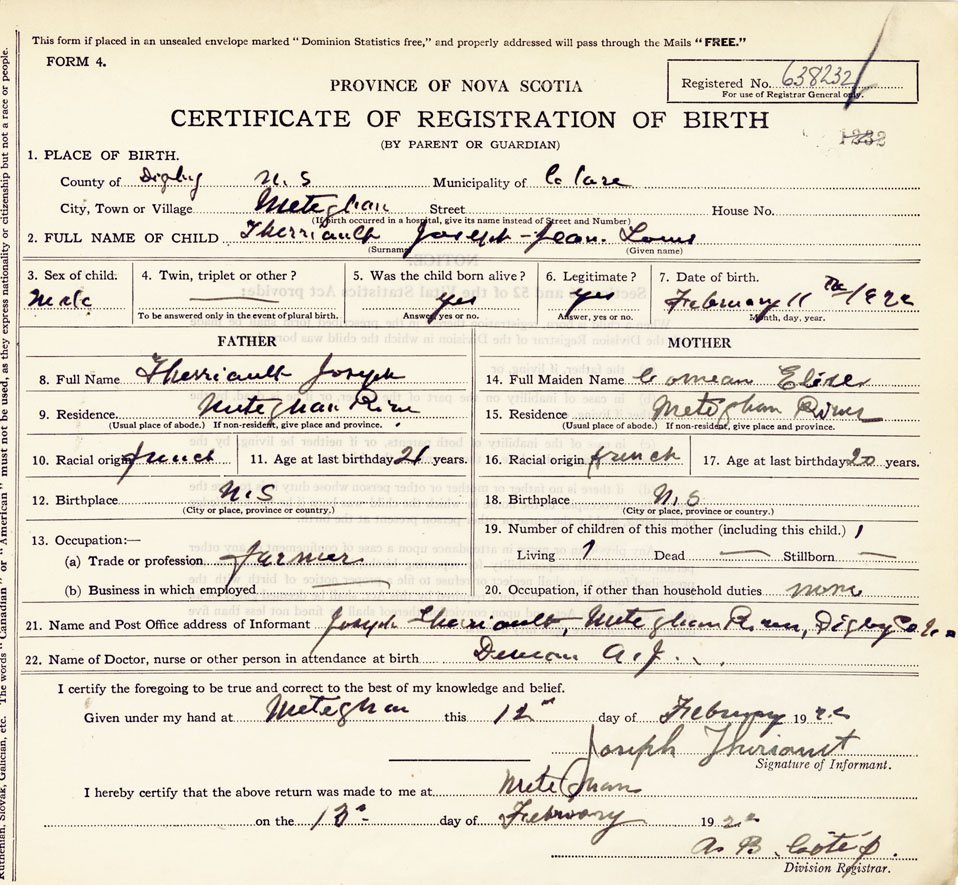 This form if placed in an unsealed envelope marked "Dominion Statistics free," and properly addressed will pass through the Mails "FREE."
FORM 4.
Registered No. 638232
For use of Registrar General only.
PROVINCE OF NOVA SCOTIA
CERTIFICATE OF REGISTRATION OF BIRTH
(BY PARENT OR GUARDIAN)
1232
1. PLACE OF BIRTH.
County of Digby N. S Municipality of Clare
City, Town or Village Meteghan Street House No.
(If birth occurred in a hospital, give its name instead of Street and Number)
2. FULL NAME OF CHILD Therriault Joseph-Jean. Louis
(Surname) (Given name)
3. Sex of child: 4. Twin, triplet or other? 5. Was the child born alive? 6. Legitimate? 7. Date of birth.
Male yes yes February 11th 1922
To be answered only in the event of plural birth. Answer, yes or no. Answer, yes or no. Month, day, year.
FATHER
8. Full Name Therriault Joseph
9. Residence. Meteghan River
(Usual place of abode.) If non-resident, give place and province.
10. Racial origin french 11. Age at last birthday years.
12. Birthplace N. S
(City or place, province or country.)
13. Occupation:—
(a) Trade or profession farmer
(b) Business in which employed
MOTHER
14. Full Maiden Name Comeau
15. Residence Meteghan River
(Usual place of abode.) If non-resident, give place and province.
16. Racial origin french 17. Age at last birthday 20 years.
18. Birthplace N. S
(City or place, province or country.)
19. Number of children of this mother (including this child.) 1
Living 1 Dead — Stillborn —
20. Occupation, if other than household duties none
21. Name and Post Office address of Informant Joseph Therriault, Meteghan River, Digby Co.
22. Name of Doctor, nurse or other person in attendance at birth A. J.
I certify the foregoing to be true and correct to the best of my knowledge and belief.
Given under my hand at Meteghan this 12th day of February 1922
Joseph Theriault
Signature of Informant.
I hereby certify that the above return was made to me at Meteghan
on the 13 day of February 1922
A. B. Côté p.
Division Registrar.
Ruthenian, Slovak, Galician, etc. The words "Canadian" or "American" must not be used, as they express nationality or citizenship but not a race or people.